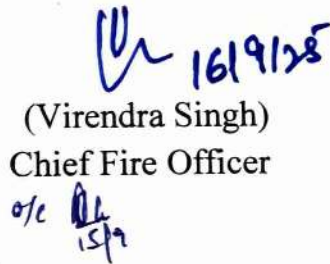 16/9/25
(Virendra Singh)
Chief Fire Officer
o/c
15/9